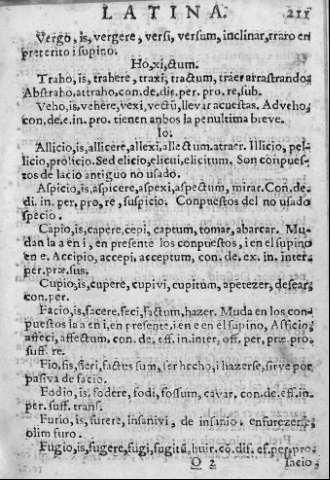 LATINA. 211
Vergo, is, vergere, versi, versum, inclinar, traro en
preterito i supino.
Ho, xi, ctum.
Traho, is, trahere, traxi, tractum, traer arrastrando.
Abstraho. attraho. con. de. dis. per. pro. re, sub.
Veho, is. vehere, vexi, vectũ, llevar acuestas. Adveho,
con. de. e. in. pro. tienen anbos la penultima breve.
Io.
Allicio, is, allicere, allexi, allectum. atraer. Illicio, pel-
licio, prolicio. Sed elicio, elicui, elicitum. Son conpues-
tos de lacio antiguo no usado.
Aspicio, is, aspicere, aspexi, aspectum, mirar. Con. de.
di. in. per, pro, rê, suspicio. Conpuestos del no usado
specio.
Capio, is, capere, cepi, captum, tomar, abarcar. Mu-
dan la a en i, en presente los conpuestos, i en el supino
en e. Accipio, accepi, acceptum, con. de. ex. in. inter,
per. præ, sus.
Cupio, is, cupere, cupivi, cupitum, apetezer, desear,
con. per.
Facio, is, facere, feci, factum, hazer. Muda en los con-
puestos la a en i, en presente, i en e en el supino, Afficio,
affeci, affectum, con. de. eff. in. inter, off. per. præ. pro.
suff. re.
Fio, fis, fieri, factus sum, ser hecho, i hazerse, sirve por
pasiva de facio.
Fodio, is, fodere, fodi, fossum, cavar, con. de. eff. in.
per. suff. trans.
Furio, is, furere, insanivi, de insanio. enfurezer,
olim furo.
Fugio, is, fugere, fugi, fugitũ, huir. cõ. dif. ef. per. pro.
O 2 Iacio,